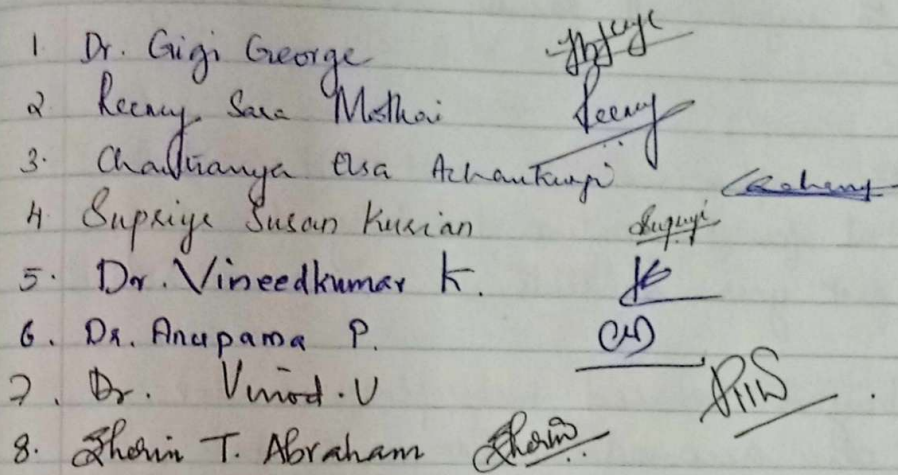 1. Dr. Gigi George
2 Reenay Sara Mathai Reenay
3. Chaithanya Elsa Achankunju
4 Supriya Susan Kurian
5. Dr. Vineedkumar K.
6. Dr. Anupama P.
7. Dr. Vinod. U
8. Sherin T. Abraham Sherin